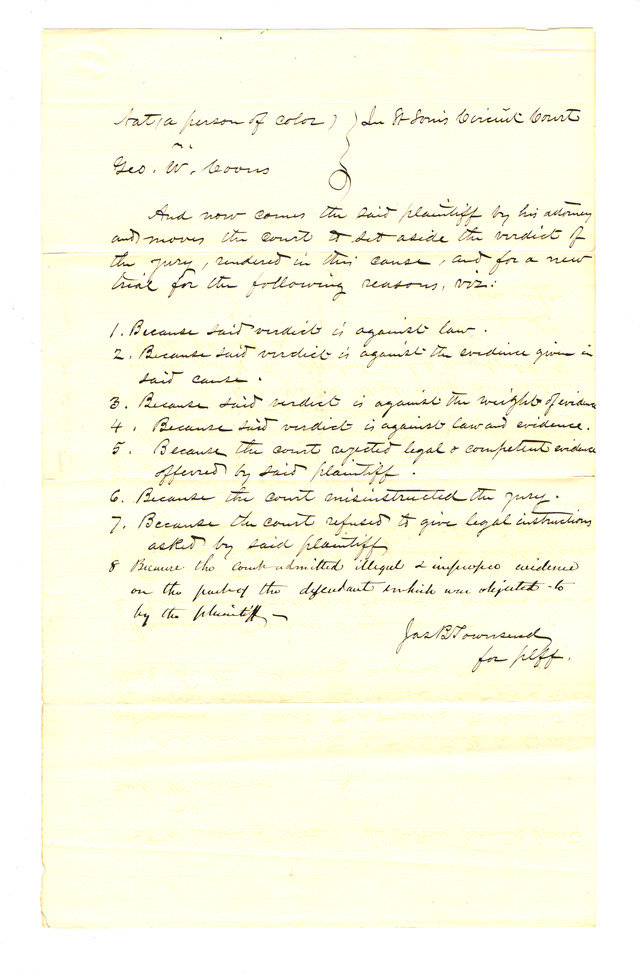 Nat (a person of color) } In St Louis Circuit Court
vs.
Geo. W. Coons
And now comes the said plaintiff by his attorney
and moves the court to set aside the verdict of
the jury, rendered in this cause, and for a new
trial for the following reasons, viz:
1. Because said verdict is against law.
2. Because said verdict is against the evidence given in
said cause.
3. Because said verdict is against the weight of evidence
4. Because said verdict is against law and evidence.
5. Because the court rejected legal & competent evidence
offerred by said plaintiff.
6. Because the court misinstructed the jury.
7. Because the court refused to give legal instructions
asked by said plaintiff
8 Because the court admitted illegal & improper evidence
on the part of the defendant & which was objected to
by the plaintiff —
Jas R Townsend
for plff.